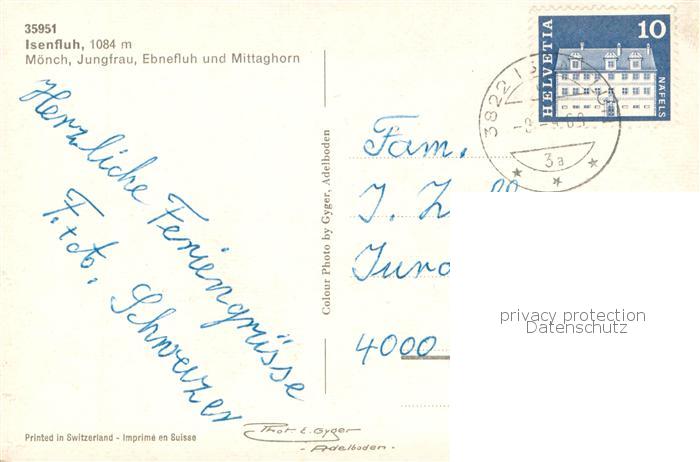 35951
Isenfluh, 1084 m
Mönch, Jungfrau, Ebnefluh und Mittaghorn
Herzliche Feriengrüsse
F. + A. Schweizer
Printed in Switzerland - Imprimé en Suisse
Colour Photo by Gyger, Adelboden
Phot. E. Gyger
- Adelboden -
HELVETIA
10
NÄFELS
3822
69
3a
Fam.
J.
4000
privacy protection
Datenschutz